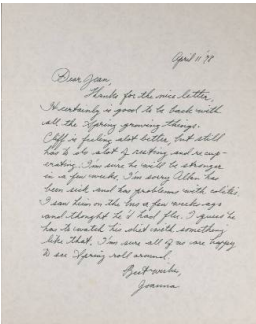 April 11 '78
Dear Jean,
Thanks for the nice letter.
It certainly is good to be back with
all the Spring growing things.
Cliff is feeling alot better, but still
has to do alot of resting and recup-
erating. I'm sure he will be stronger
in a few weeks. I'm sorry Allen has
been sick and has problems with colitis.
I saw him on the bus a few weeks ago
and thought he'd had flu. I guess he
has to watch his diet with something
like that. I'm sure all of us are happy
to see Spring roll around.
Best wishes,
Joanna